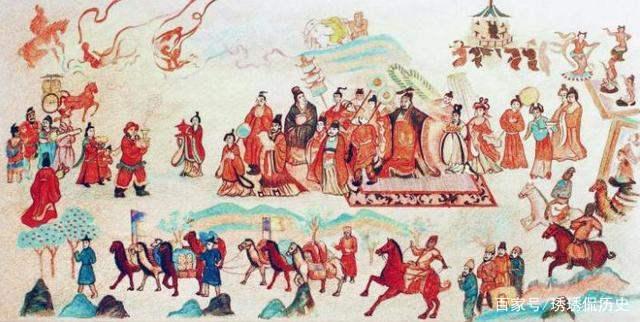 百家号/琇琇侃历史